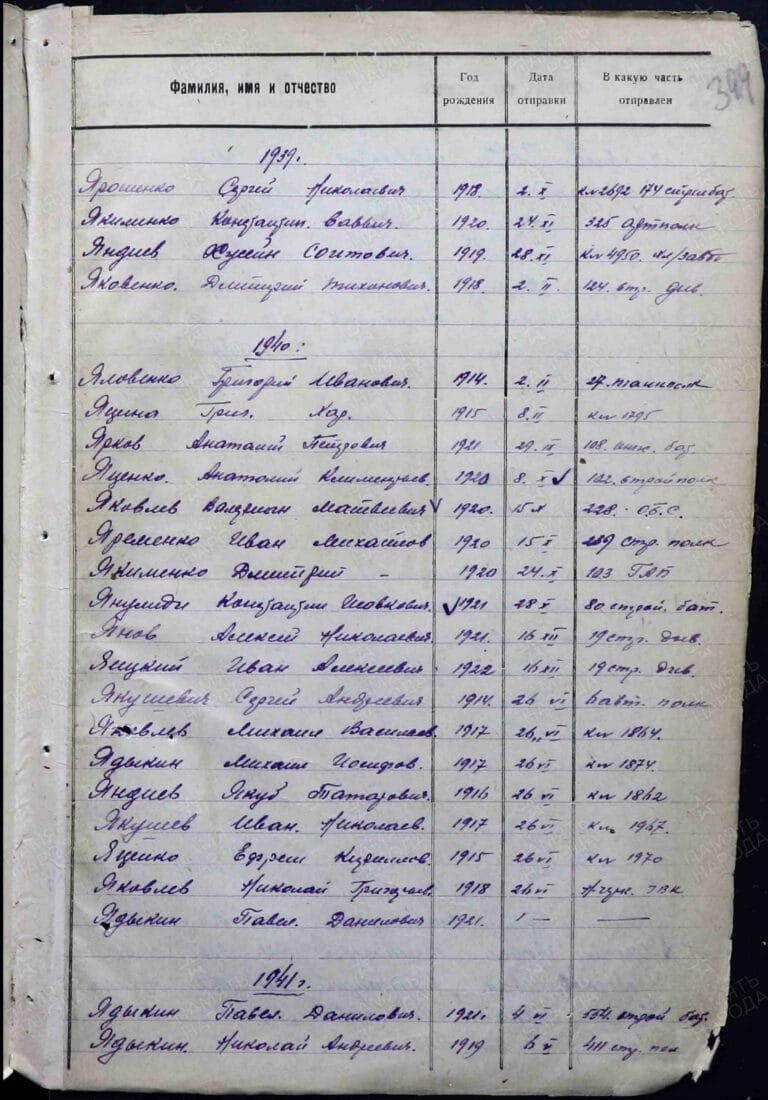 399
Фамилия, имя и отчество Год рождения Дата отправки В какую часть отправлен
1939г.
Ярошенко Сергей Николаевич 1918. 2. X кл 2692 174 стр. бат
Якименко Константин. Саввич. 1920. 24. XI 325 артполк
Яндиев Хусейн Соитович. 1919. 28. XI кл 4950.
Яковенко. Дмитрий Тихонович. 1918. 2. II. 124. стр. див.
1940г:
Яловенко Григорий Иванович. 1914. 2. II 27. танк полк
Яцина Григ. Хар. 1915 8. II кл 1795
Ярков Анатолий Петрович 1921 29. III 108. инж. бат.
Яценко. Анатолий Климентьев. 1920 8. X 102. строй полк
Яковлев Валериан Матвеевич 1920. 15 X 228. О.Б.С.
Яременко Иван Михайлов 1920 15 X 289 стр. полк
Якименко Дмитрий - 1920 24. X 103 ГАП
Янулиди Константин Исовкович. 1921 28 X 80 строй. бат.
Янов Алексей Николаевич. 1921. 16 XII 19 стр. див.
Яицкий Иван Алексеевич 1922 16 XII 19 стр. див.
Якушевич Сергей Андреевич 1914. 26 VI 6 авт. полк
Яковлев Михаил Васильев. 1917 26 VI кл 1864.
Ядыкин Михаил Иосифов. 1917 26 VI кл 1874.
Яндиев Якуб Татарович. 1916 26 VI кл 1862
Якушев Иван. Николаев. 1917 26 VI кл 1967.
Яценко Ефрем Кириллов. 1915 26 VI кл 1970
Яковлев Николай Григорьев. 1918 26 VI РВК
Ядыкин Павел. Данилович 1921. 1 — ——
1941г.
Ядыкин Павел. Данилович. 1921г. 4 VI 554. строй бат.
Ядыкин. Николай Андреевич. 1919 6 V 411 стр. пол